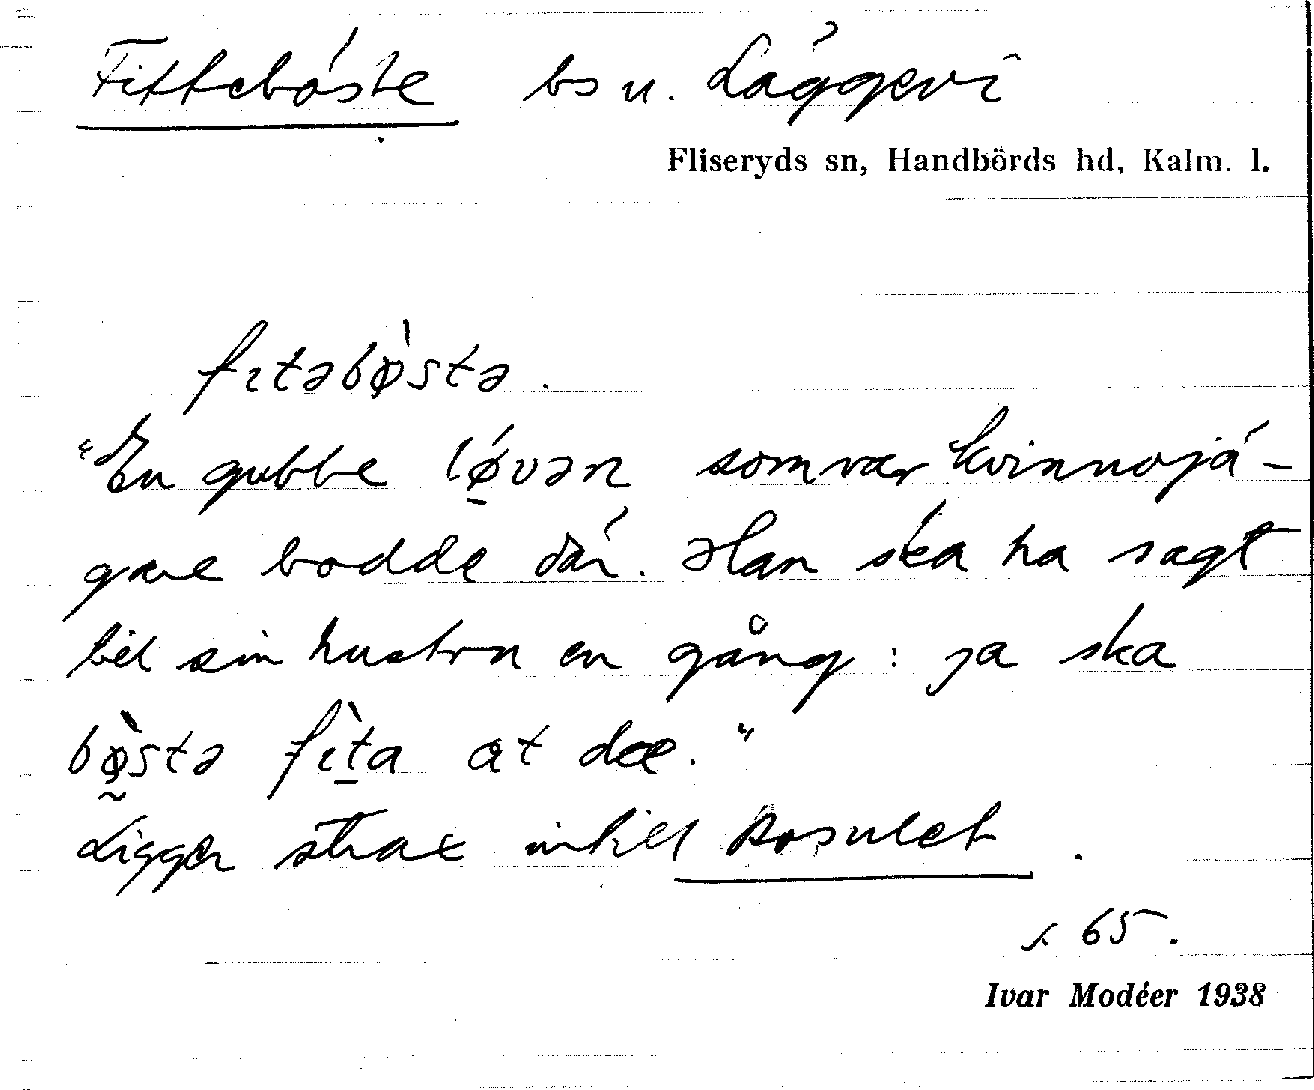 Fittebóste bs u. Läggevi
Fliseryds sn, Handbörds hd, Kalm. l.
fɪtəbø̀stə.
"En gubbe lǿvən som var kvinnojä-
gare bodde där. Han ska ha sagt
till sin hustru en gång: ja ska
bø̀stə fɪ̀ta at dæ."
Ligger strax intill Rosulet.
s. 65.
Ivar Modéer 1938